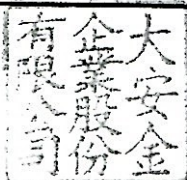 大安金
企業股份
有限公司